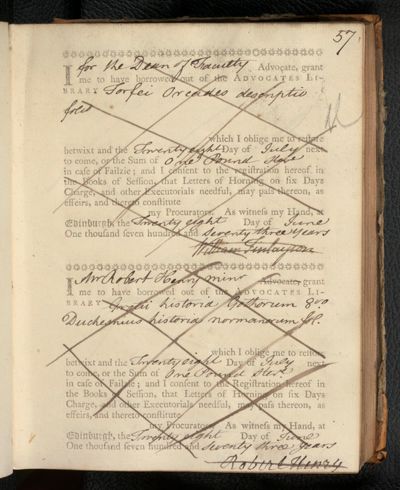 57.
I for the Dean of Faculty Advocate, grant
me to have borrowed out of the ADVOCATES LI-
BRARY Torfei Orcades descriptio
folio
which I oblige me to restore
betwixt and the Twenty eight Day of July next
to come, or the Sum of One Pound Ster
in case of Failzie; and I consent to the registration hereof in
the Books of Session, that Letters of Horning on six Days
Charge, and other Executorials needful, may pass thereon, as
effeirs, and thereto constitute
my Procurators. As witness my Hand, at
Edinburgh, the Twenty eight Day of June
One thousand seven hundred and Seventy three years
William Finlayson
I Mr Robert Henry minr Advocate, grant
me to have borrowed out of the ADVOCATES LI-
BRARY Grotii historia Gothorum 8vo
Duchesnius historia normanorum fol.
which I oblige me to restore
betwixt and the Twenty eight Day of July next
to come, or the Sum of One Pound Ster
in case of Failzie; and I consent to the Registration hereof in
the Books of Session, that Letters of Horning on six Days
Charge, and other Executorials needful, may pass thereon, as
effeirs, and thereto constitute
my Procurators. As witness my Hand, at
Edinburgh, the Twenty eight Day of June
One thousand seven hundred and Seventy three years
Robert Henry